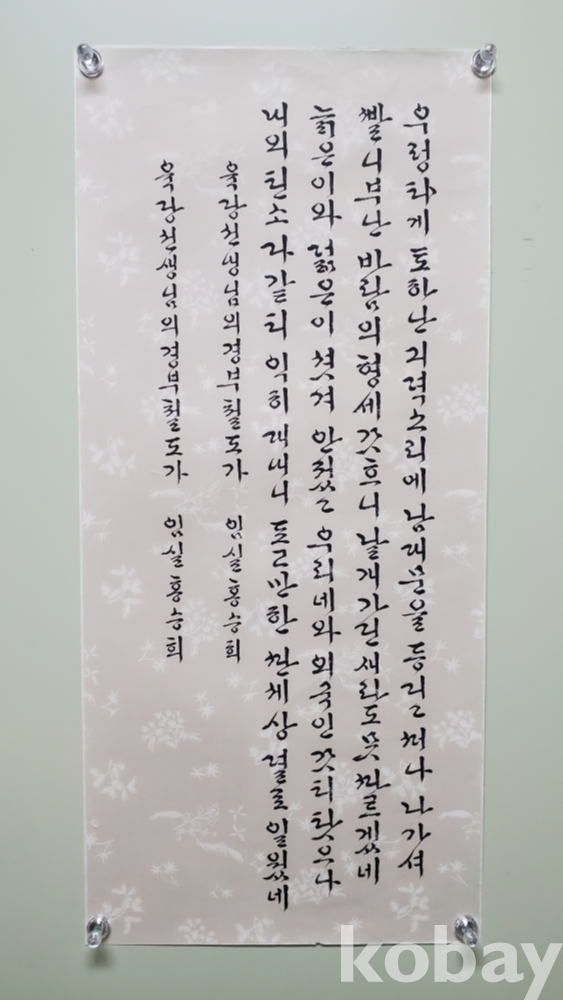 우렁탸게 토하난 긔뎍소리에 남대문을 등디고 ᄯᅥ나 나가셔
ᄲᅡᆯ니부난 바람의 형세갓흐니 날개가딘 새라도 못ᄯᅡ르겟네
늙은이와 뎖은이 셧겨 안젓고 우리네와 외국인 갓티 탓으나
내외틴소 다갓티 익히 디내니 됴그만한 ᄯᅡᆫ세상 뎔로 일웟네
육당선생님의 경부철도가 임실 홍승희
육당선생님의 경부철도가 임실 홍승희
kobay